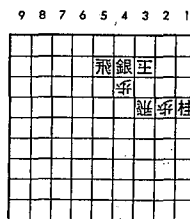 9 8 7 6 5 4 3 2 1
飛銀王
歩
飛歩桂